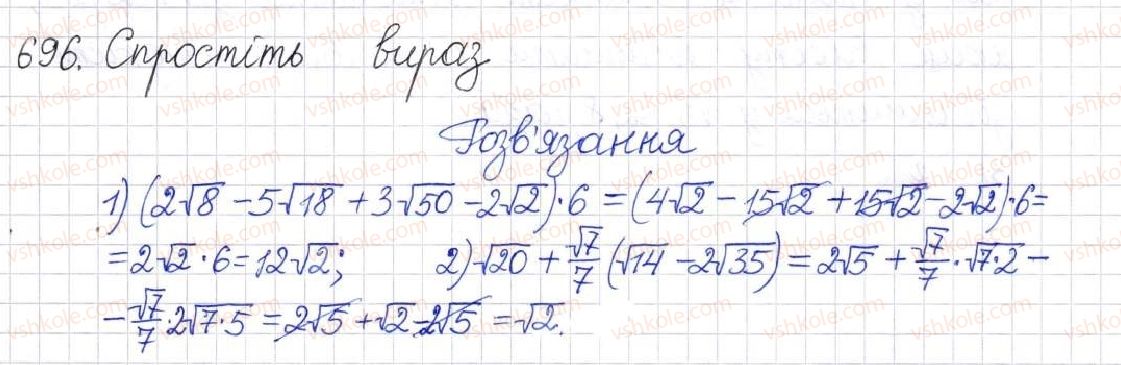 696. Спростіть вираз
Розв'язання
1) (2√8 - 5√18 + 3√50 - 2√2)·6 = (4√2 - 15√2 + 15√2 - 2√2)·6 =
= 2√2·6 = 12√2; 2) √20 + √7/7 (√14 - 2√35) = 2√5 + √7/7 · √7·2 -
- √7/7 · 2√7·5 = 2√5 + √2 - 2√5 = √2.
vshkole.com